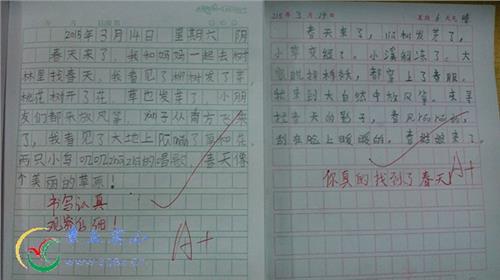 2015年3月14日 星期六 阴
春天来了，我和妈妈一起去树
林里找春天。我看见了树树发了芽，
桃花树开了花，草也发芽了，小朋
友们都来放风筝，燕子从南方飞来
了，我看见了大地上阳
两只小鸟吱吱zhazha的唱歌，春天像
个美丽的草原！
书写认真
观察仔细！
A+
215年3月14日 星期6 天气 晴
春天来了，树发芽了，
小草变绿了，小溪解冻了，大
都穿上了春服，
我来到大自然中放风筝，来寻
找春天的影子，春风
刮在脸上暖暖的，春姑娘来了。
你真的找到了春天
A+